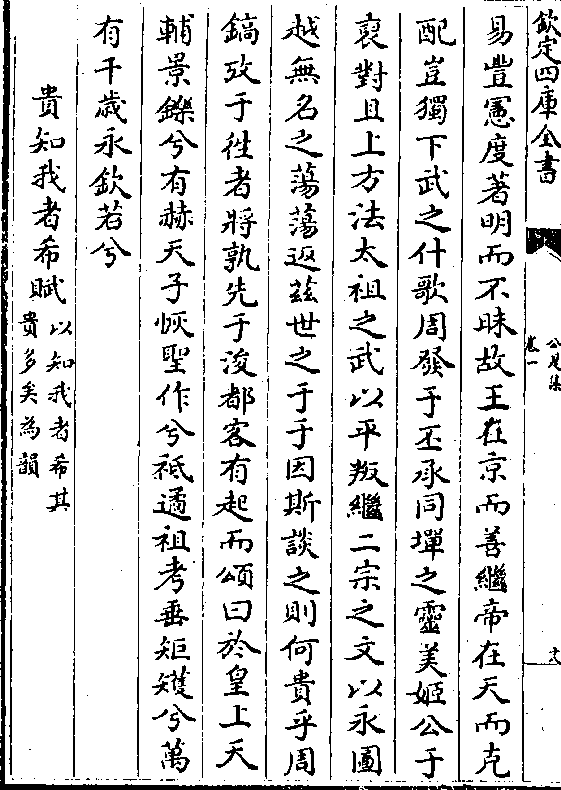 欽定四庫全書
公是集
卷一
十六
易豐憲度著明而不昧故王在京而善繼帝在天而克
配豈獨下武之什歌周發于丕承同墠之靈美姬公于
裒對且上方法太祖之武以平叛繼二宗之文以永圖
越無名之蕩蕩返兹世之于于因斯談之則何貴乎周
鎬攷于徃者將孰先于浚都客有起而頌曰於皇上天
輔景鑠兮有赫天子恢聖作兮祗遹祖考垂矩矱兮萬
有千歲永欽若兮
貴知我者希賦以知我者希其
貴多矣為韻